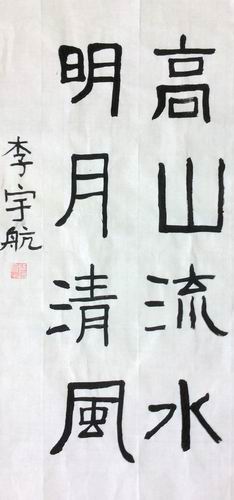 高山流水
明月清風
李宇航